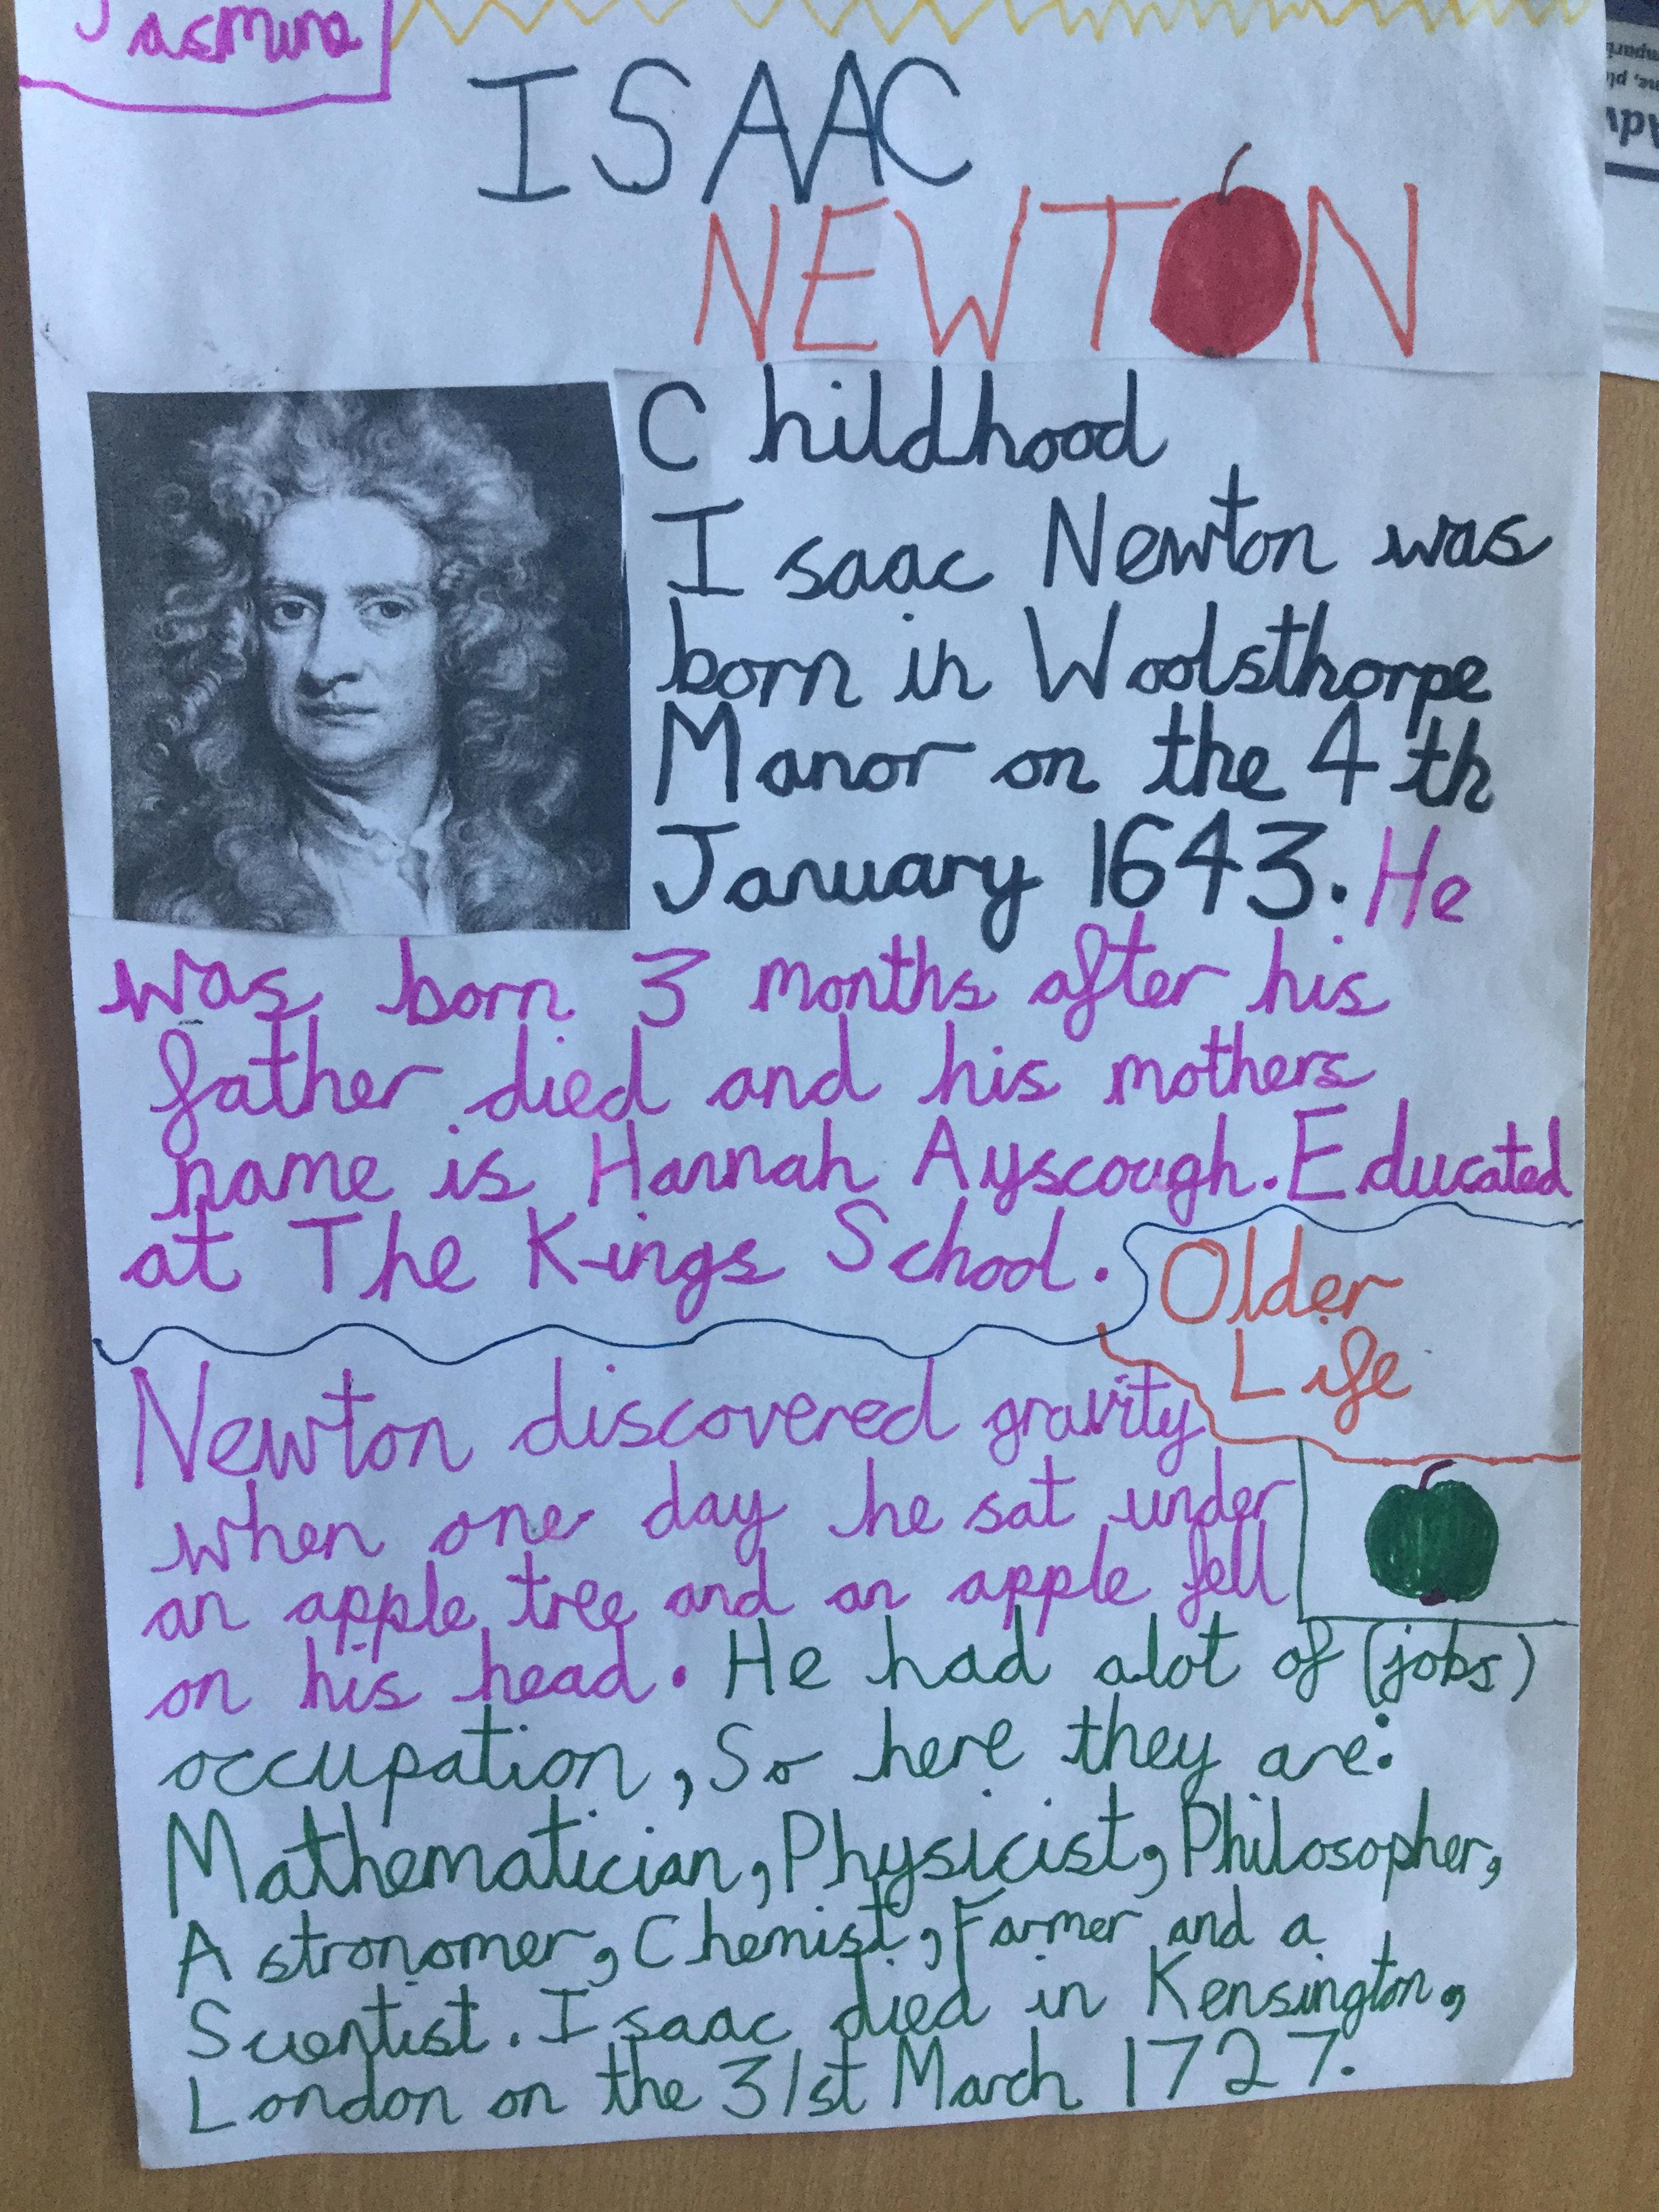 Jasmine
ISAAC
NEWTON
Childhood
Isaac Newton was
born in Woolsthorpe
Manor on the 4th
January 1643. He
was born 3 months after his
father died and his mothers
name is Hannah Ayscough. Educated
at The Kings School.
Older
Life
Newton discovered gravity
when one day he sat under
an apple tree and an apple fell
on his head. He had alot of (jobs)
occupation, So here they are:
Mathematician, Physicist, Philosopher,
Astronomer, Chemist, Farmer and a
Scientist. Isaac died in Kensington,
London on the 31st March 1727.